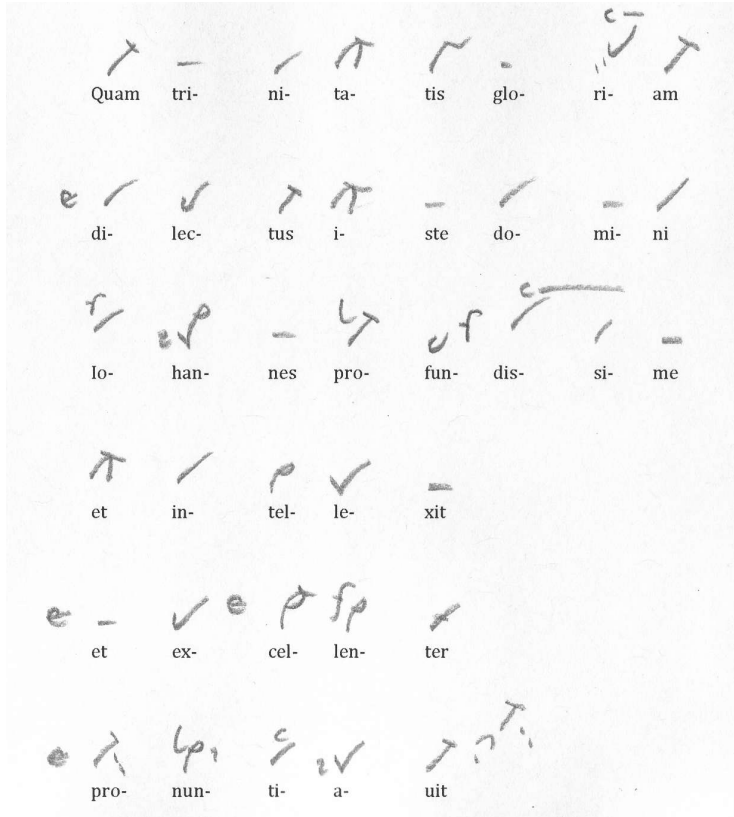 Quam tri- ni- ta- tis glo- ri- am
di- lec- tus i- ste do- mi- ni
Io- han- nes pro- fun- dis- si- me
et in- tel- le- xit
et ex- cel- len- ter
pro- nun- ti- a- uit